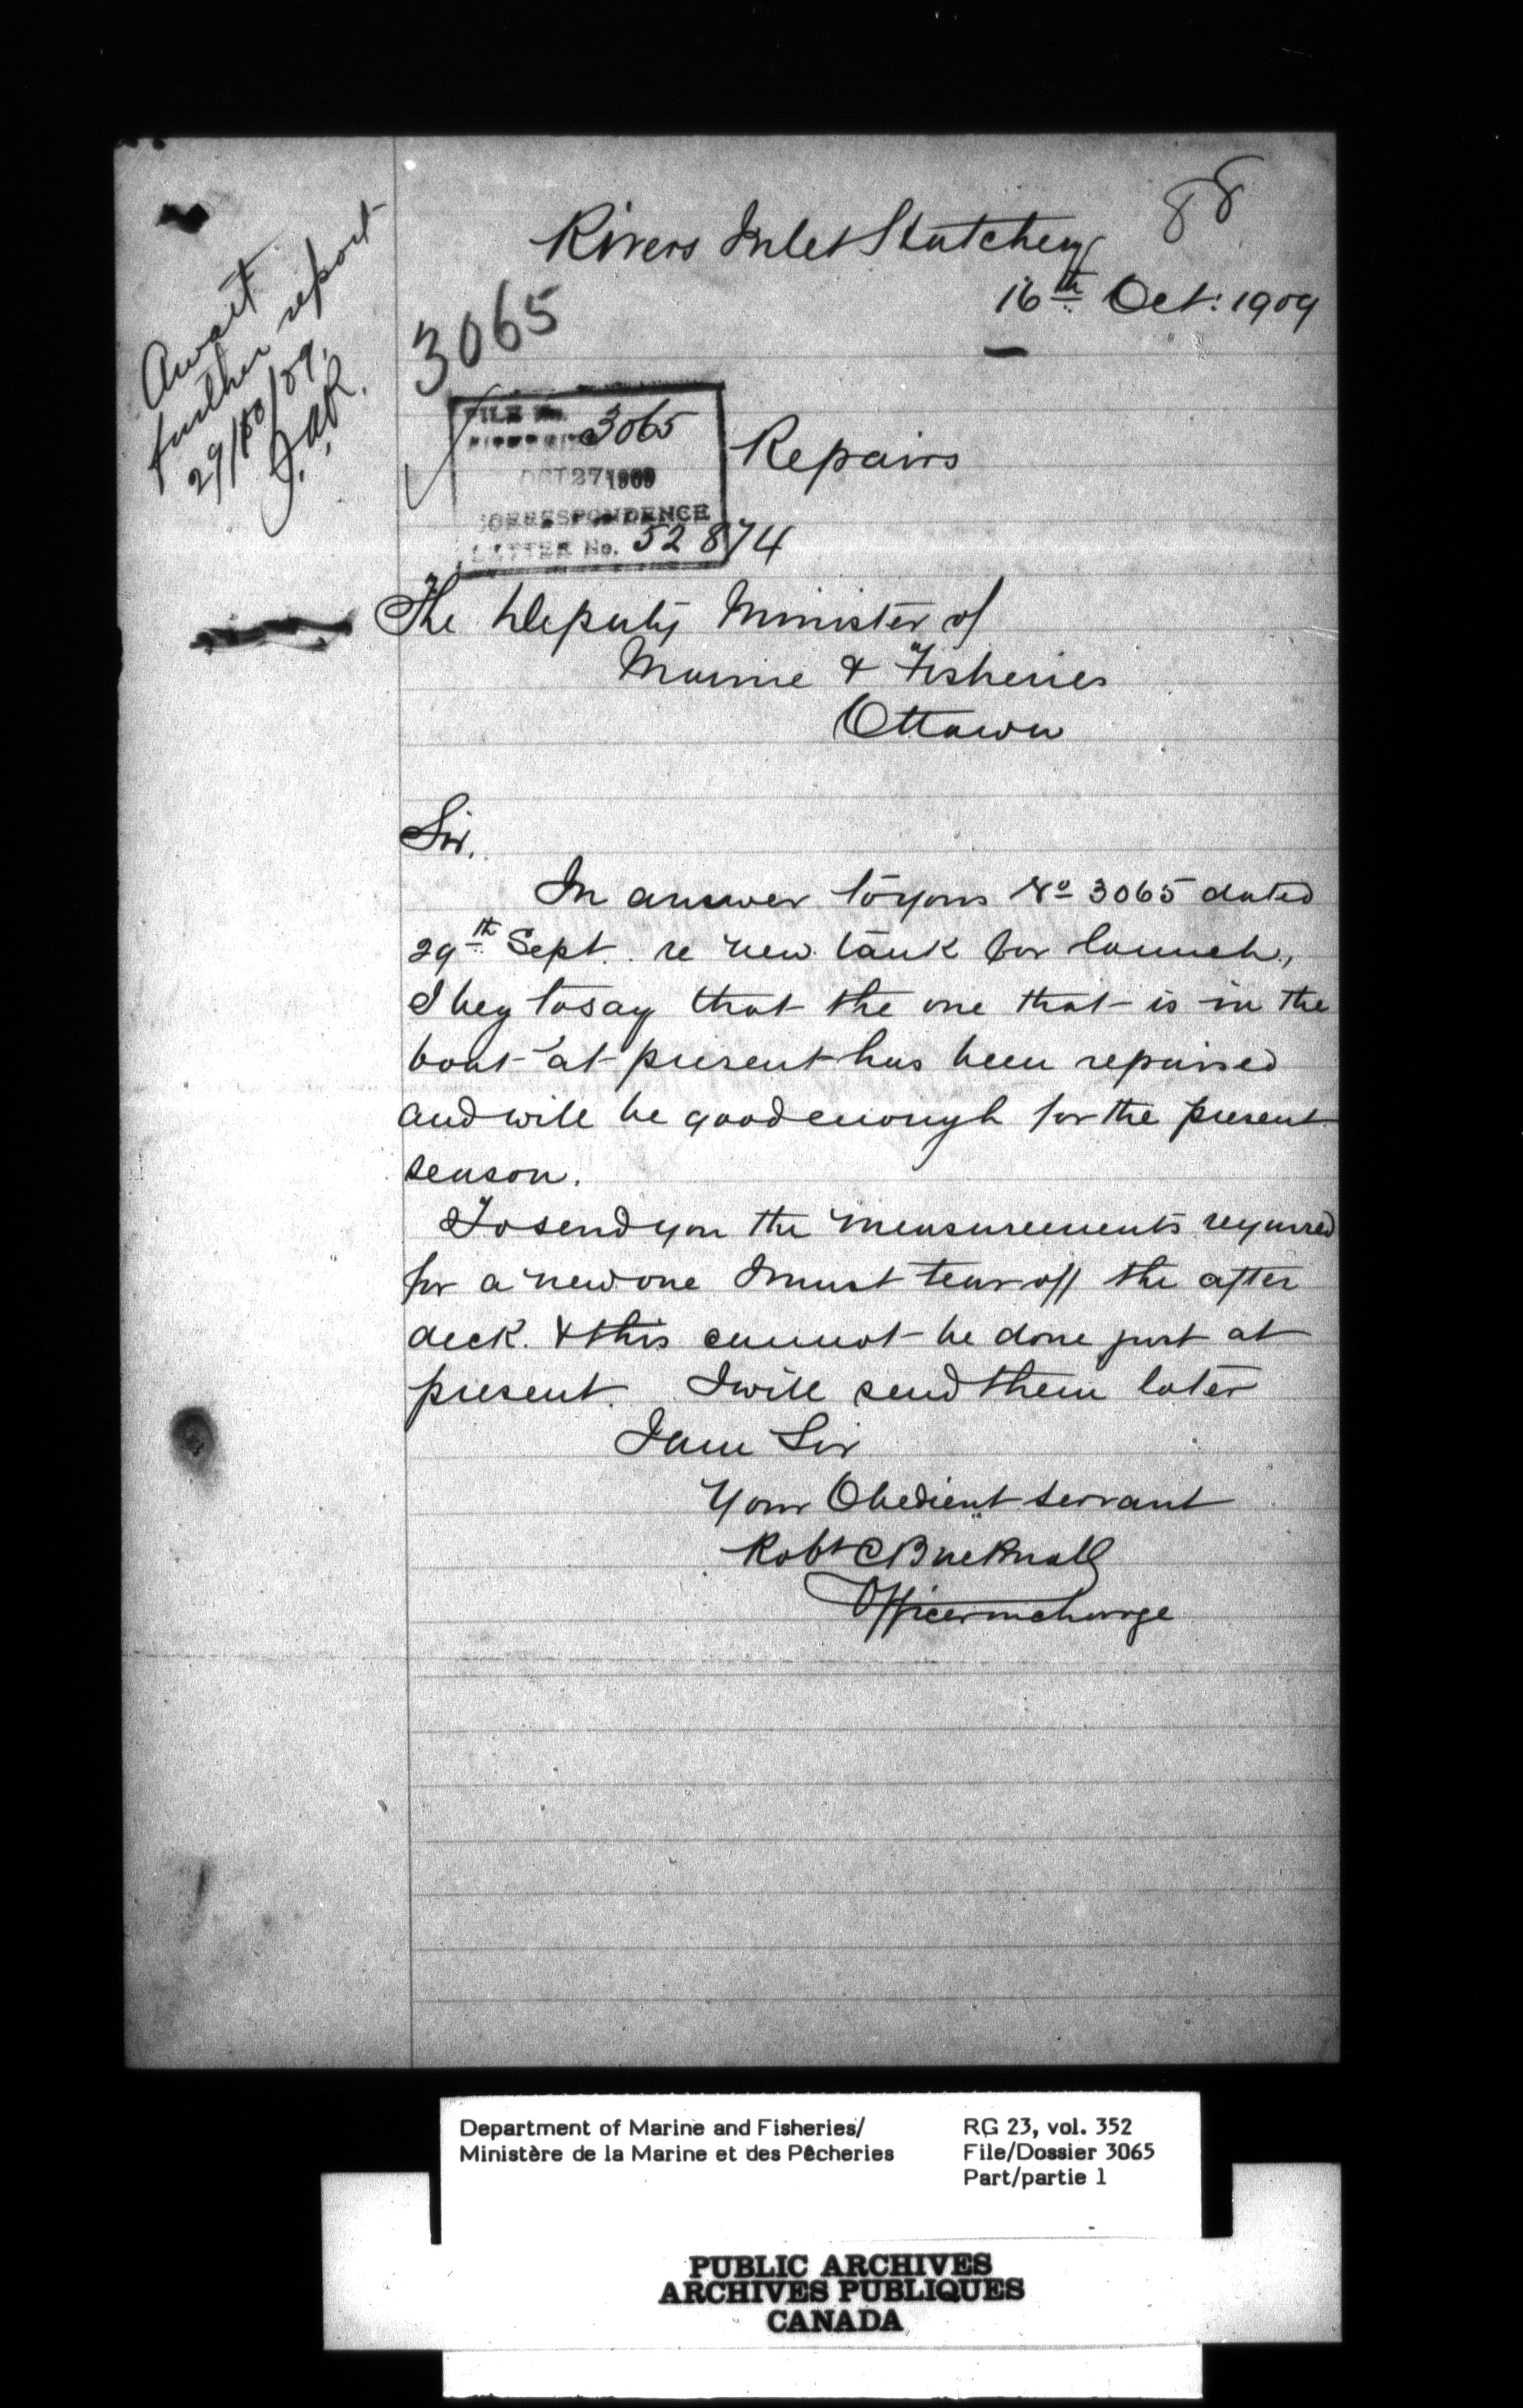 88
Rivers Inlet Hatchery
16th Oct: 1909
Await
further report
29/10/09.
3065
FILE No.
FISHERIES 3065
OCT 27 1909
CORRESPONDENCE
LETTER No. 52874
Repairs
The Deputy Minister of
Marine & Fisheries
Ottawa
Sir,
In answer to yours No 3065 dated
29th Sept. re new tank for launch,
I beg to say that the one that is in the
boat at present has been repaired
and will be good enough for the present
season.
To send you the measurements required
for a new one I must tear off the after
deck. & this cannot be done just at
present. I will send them later
I am Sir
Your Obedient servant
Robt C Bucknall
Officer in charge
Department of Marine and Fisheries/
Ministère de la Marine et des Pêcheries
RG 23, vol. 352
File/Dossier 3065
Part/partie 1
PUBLIC ARCHIVES
ARCHIVES PUBLIQUES
CANADA